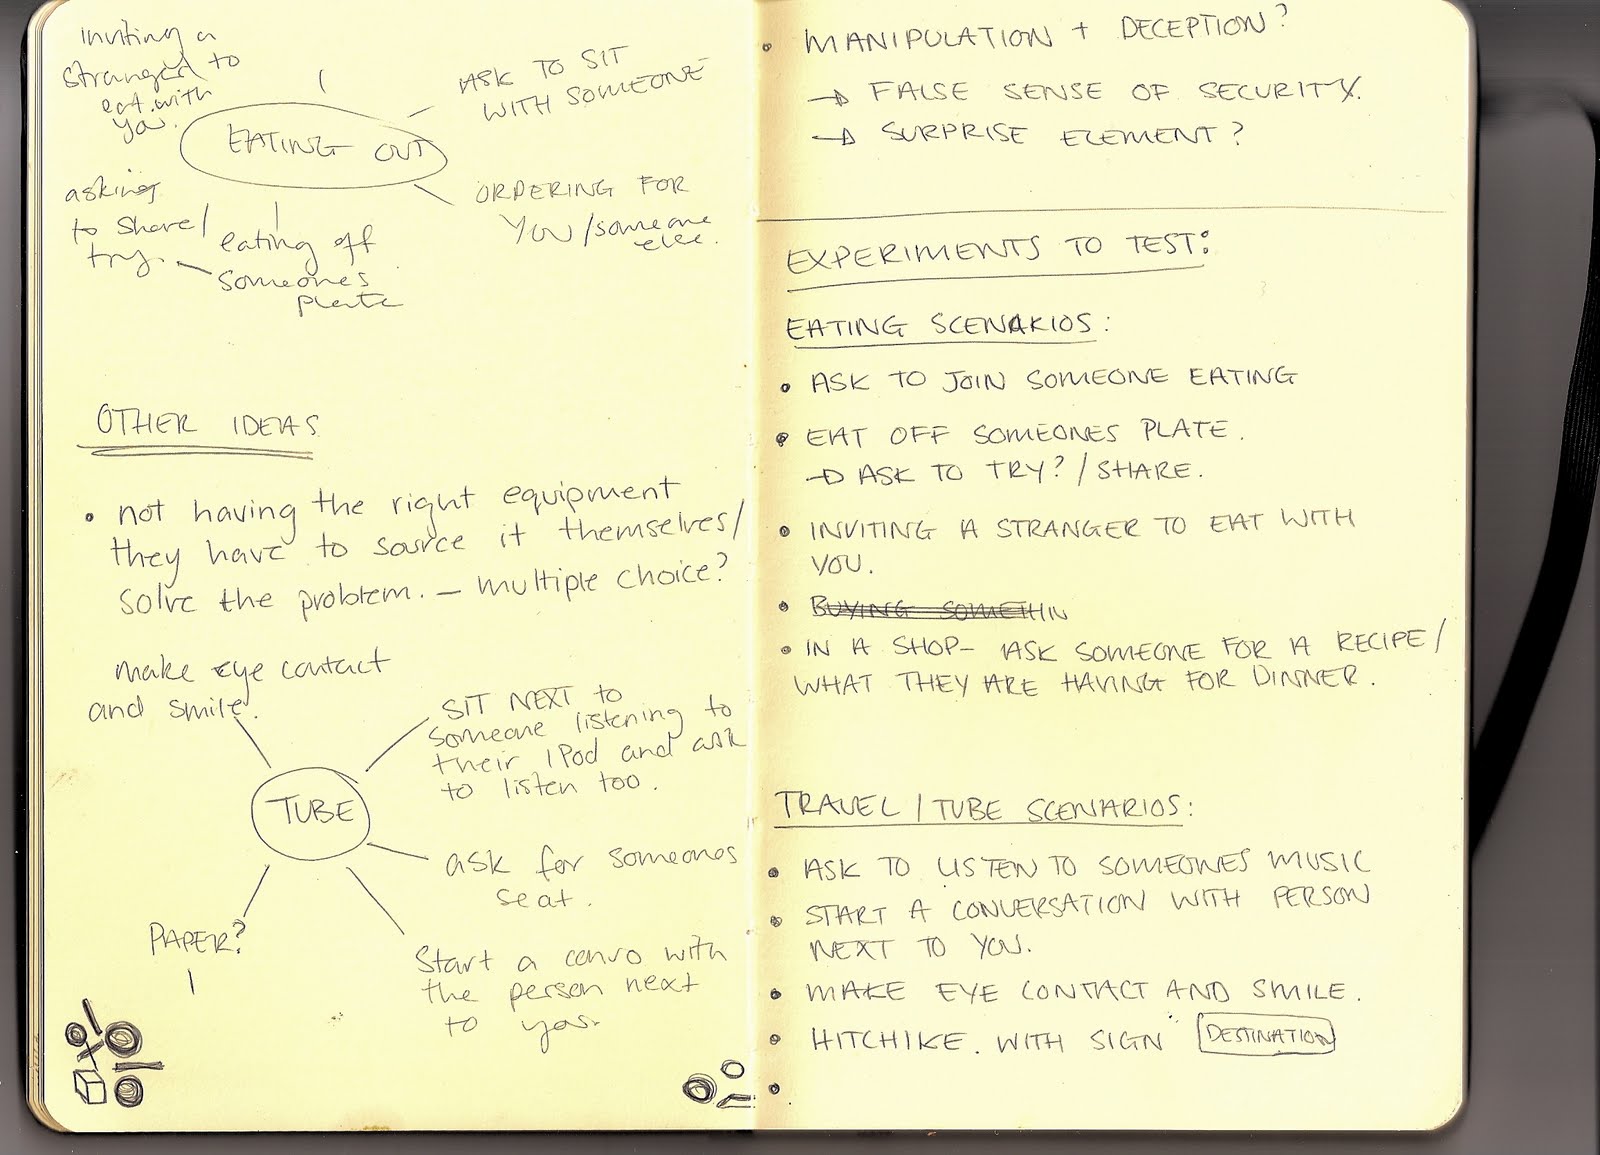 inviting a
stranger to
eat with
you.
ASK TO SIT
WITH SOMEONE
EATING OUT
asking
to share/
try.
eating off
someones
plate
ORDERING FOR
YOU/someone
else.
OTHER IDEAS
• not having the right equipment
they have to source it themselves/
solve the problem. – multiple choice?
make eye contact
and smile.
SIT NEXT to
someone listening to
their iPod and ask
to listen too.
TUBE
ask for someones
seat.
PAPER?
Start a convo with
the person next
to you.
• MANIPULATION + DECEPTION?
→ FALSE SENSE OF SECURITY.
→ SURPRISE ELEMENT?
EXPERIMENTS TO TEST:
EATING SCENARIOS:
• ASK TO JOIN SOMEONE EATING
• EAT OFF SOMEONES PLATE.
→ ASK TO TRY? / SHARE.
• INVITING A STRANGER TO EAT WITH
YOU.
• BUYING SOMETHIN
• IN A SHOP– ASK SOMEONE FOR A RECIPE/
WHAT THEY ARE HAVING FOR DINNER.
TRAVEL / TUBE SCENARIOS:
• ASK TO LISTEN TO SOMEONES MUSIC
• START A CONVERSATION WITH PERSON
NEXT TO YOU.
• MAKE EYE CONTACT AND SMILE.
• HITCHIKE. WITH SIGN DESTINATION
•